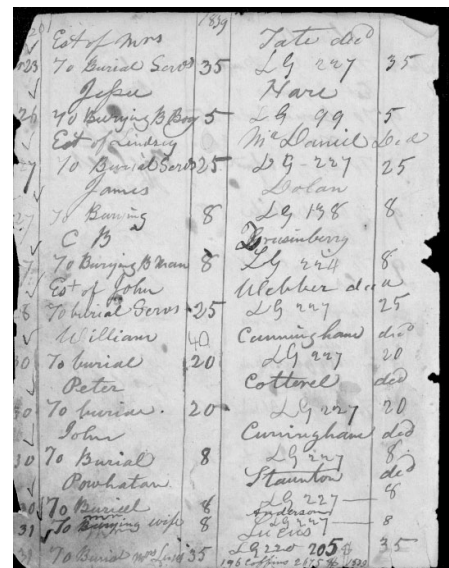 1839
Est of Mrs Tate decd
23 To Burial Servs 35 LG 227 35
Jessee Hare
26 To Burying B Boy 5 LG 99 5
Est of Lindsey McDaniel Decd
27 To Burial Servs 25 LG - 227 25
James Dolan
27 To Burying 8 LG 138 8
C B Brusenberry
To Burying B Man 8 LG 224 8
Est of John Webber decd
8 To burial Servs - 25 LG 227 25
William 40 Cunningham decd
30 To burial 20 LG 227 20
Peter Cotterel decd
30 To burial. 20 LG 227 20
John Cunningham decd
30 To Burial 8 LG 227 8
Powhatan Staunton decd
To Buriel 8 LG 227 — 8
Anderson
31 To Burying wife 8 LG 227 — 8
Lucus
31 To Burial Mrs 35 LG 220 205 $ 35
196 Coffins